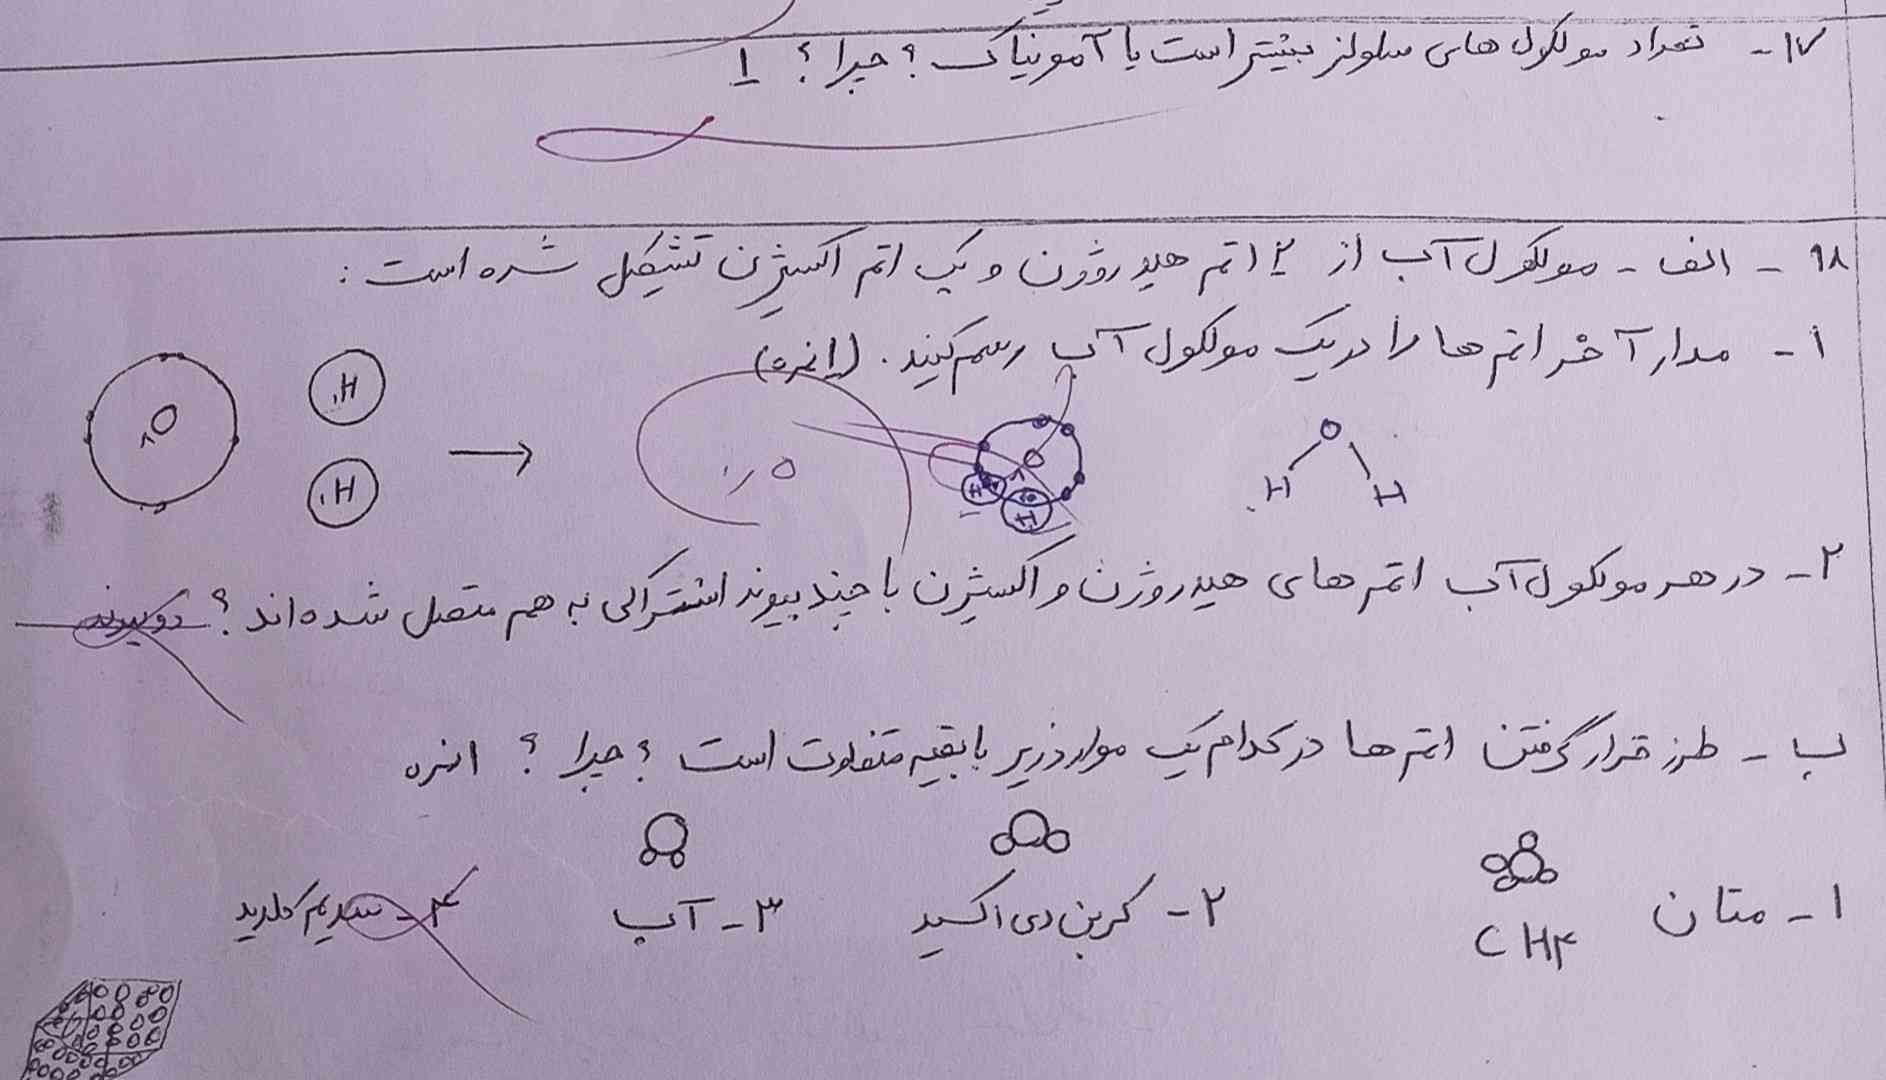 ۱۷- تعداد مولکول های سلولز بیشتر است یا آمونیاک؟ چرا؟ ۱
۱۸- الف - مولکول آب از ۲ اتم هیدروژن و یک اتم اکسیژن تشکیل شده است:
۱- مدار آخر اتم ها را در یک مولکول آب رسم کنید. (۱نمره)
₈O ₁H ₁H → ₈O ₈O H H O H H
۲- در هر مولکول آب اتم های هیدروژن و اکسیژن با چند پیوند اشتراکی به هم متصل شده اند؟ دو پیوند
ب- طرز قرار گرفتن اتم ها در کدام یک موارد زیر با بقیه متفاوت است؟ چرا؟ ۱نمره
۱- متان CH۴ ۲- کربن دی اکسید ۳- آب ۴- سدیم کلرید